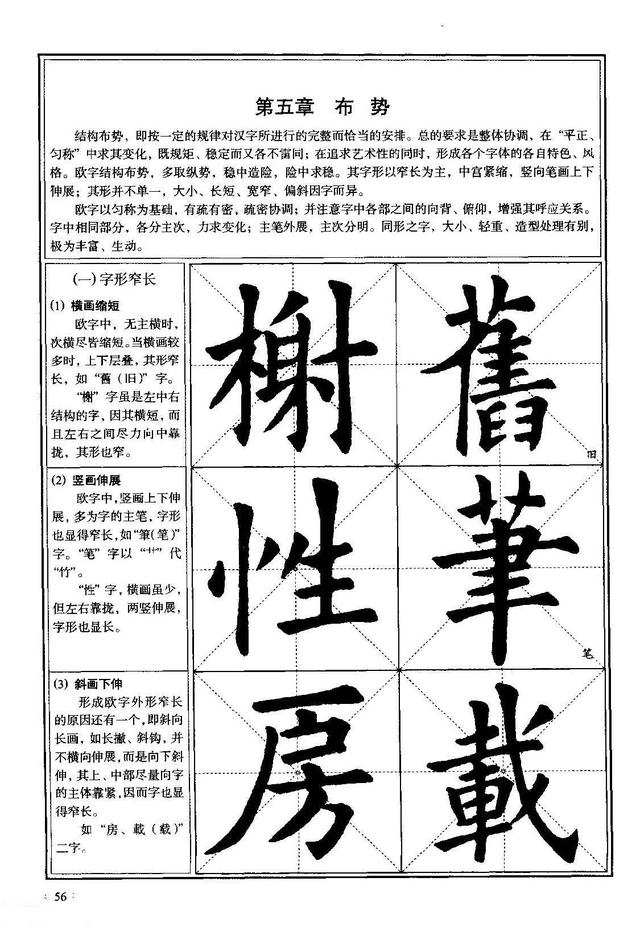 第五章 布 势
结构布势，即按一定的规律对汉字所进行的完整而恰当的安排。总的要求是整体协调，在“平正、
匀称”中求其变化，既规矩、稳定而又各不雷同；在追求艺术性的同时，形成各个字体的各自特色、风
格。欧字结构布势，多取纵势，稳中造险，险中求稳。其字形以窄长为主，中宫紧缩，竖向笔画上下
伸展；其形并不单一，大小、长短、宽窄、偏斜因字而异。
欧字以匀称为基础，有疏有密，疏密协调；并注意字中各部之间的向背、俯仰，增强其呼应关系。
字中相同部分，各分主次，力求变化；主笔外展，主次分明。同形之字，大小、轻重、造型处理有别，
极为丰富、生动。
(一) 字形窄长
(1) 横画缩短
欧字中，无主横时，
次横尽皆缩短。当横画较
多时，上下层叠，其形窄
长，如“舊（旧）”字。
“榭”字虽是左中右
结构的字，因其横短，而
且左右之间尽力向中靠
拢，其形也窄。
榭 舊
旧
(2) 竖画伸展
欧字中，竖画上下伸
展，多为字的主笔，字形
也显得窄长，如“筆(笔)”
字。“笔”字以“艹”代
“竹”。
“性”字，横画虽少，
但左右靠拢，两竖伸展，
字形也显长。
性 荜
笔
(3) 斜画下伸
形成欧字外形窄长
的原因还有一个，即斜向
长画，如长撇、斜钩，并
不横向伸展，而是向下斜
伸，其上、中部尽量向字
的主体靠紧，因而字也显
得窄长。
如“房、載（载）”
二字。
房 載
56